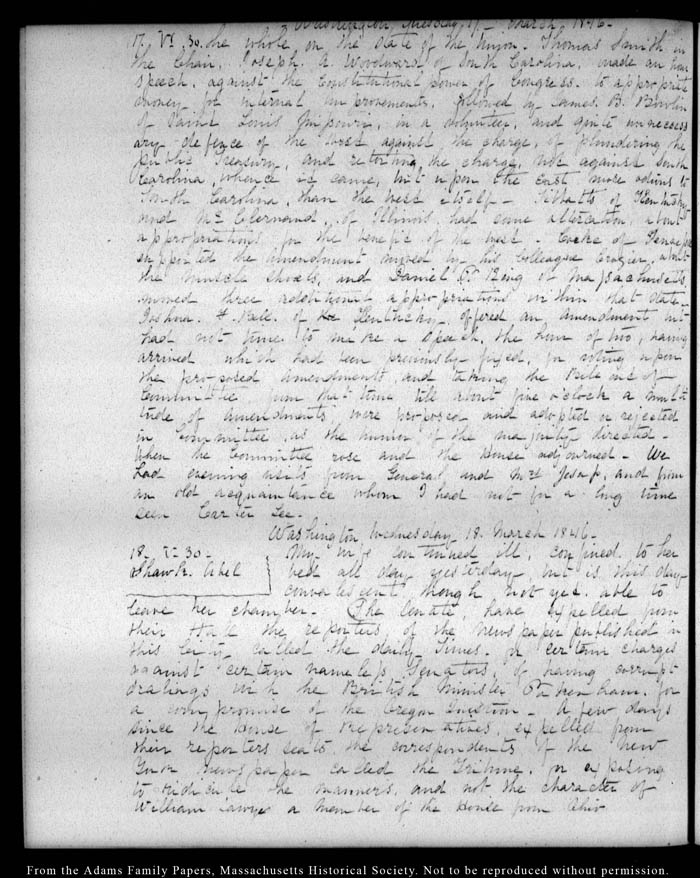 Washington, Tuesday 17. March 1846.
17. VI. 30. the whole, on the state of the Union. Thomas Smith in
the Chair, Joseph A. Woodward of South Carolina, made an hour
speech, against the Constitutional power of Congress, to appropriate
money for internal improvements, followed by James B. Bowlin
of Saint Louis Missouri, in a volunteer, and quite unnecess
ary defence of the west against the charge, of plundering the
public Treasury, and retorting the charge, not against South
Carolina, whence it came, but upon the East, more odious to
South Carolina, than the west itself— Tibbatts of Kentucky
and McClernand, of Illinois, had some altercation, about
appropriations for the benefit of the west. Cocke of Tennessee
supported the amendment moved by his Colleague Crozier, about
the Muscle Shoals, and Daniel P. King of Massachusetts
moved three additional appropriations within that State.
Joshua F. Bell, of Kentucky, offered an amendment but
had not time to make a Speech, the hour of two, having
arrived which had been previously fixed, for voting upon
the proposed amendments, and taking the Bill out of
Committee from that time till about five o'clock a multi
tude of amendments, were proposed and adopted or rejected
in Committee, as the humour of the majority directed—
When the Committee rose and the House adjourned— We
had evening visits from General, and Mrs Jesup, and from
an old acquaintance whom I had not for a long time
seen Carter Lee.
Washington, Wednesday 18. March 1846.
18. V. 30.
My wife continued ill, confined to her
Shawk. Abel
bed all day yesterday, but is this day
convalescent, though not yet able to
leave her chamber— The Senate, have expelled from
their Hall the reporters of the Newspaper published in
this City called the daily Times, for certain charges
against certain nameless Senators, of having corrupt
dealings with the British Minister Pakenham, for
a compromise of the Oregon question— A few days
since the House of Representatives, expelled from
their reporters seats, the correspondents of the New
York newspaper called the Tribune, for exposing
to ridicule the manners, and not the character of
William Sawyer a member of the House from Ohio
From the Adams Family Papers, Massachusetts Historical Society. Not to be reproduced without permission.